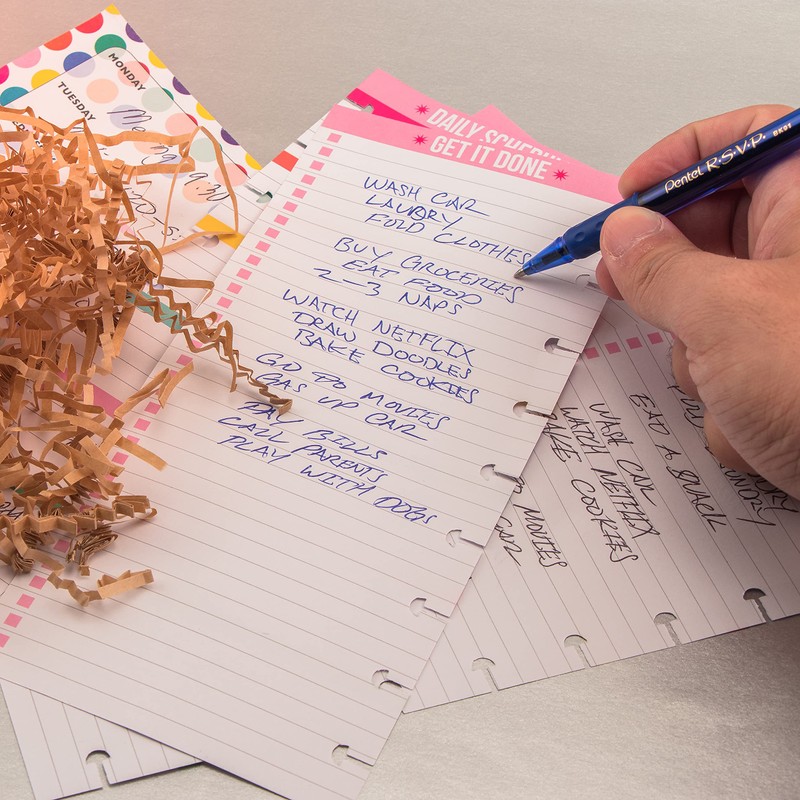 MONDAY
TUESDAY
DAILY SCHEDU
GET IT DONE
Pentel R·S·V·P. BK91
WASH CAR
LAUNDRY
FOLD CLOTHES
BUY GROCERIES
EAT FOOD
2-3 NAPS
WATCH NETFLIX
DRAW DOODLES
BAKE COOKIES
GO TO MOVIES
GAS UP CAR
PAY BILLS
CALL PARENTS
PLAY WITH DOGS
EAT A SNACK
WASH CAR
WATCH NETFLIX
BAKE COOKIES
MOVIES
CAR